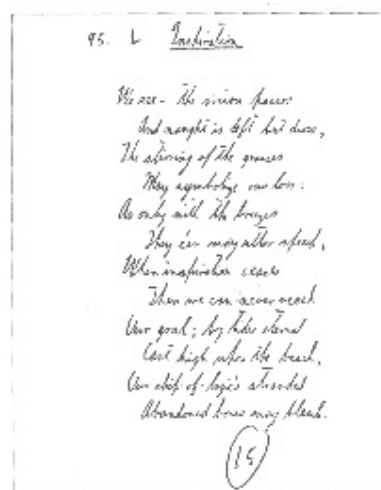 95. L Inspiration
We see - the vision passes
And naught is left but dross,
The stirring of the grasses
They symbolize our loss:
As only with the breezes
They e'er may utter speech,
When inspiration ceases
Then we can never reach
Our goal; by tides eternal
Cast high upon the beach,
Our ship of logic stranded
Abandoned bones may bleach.
15